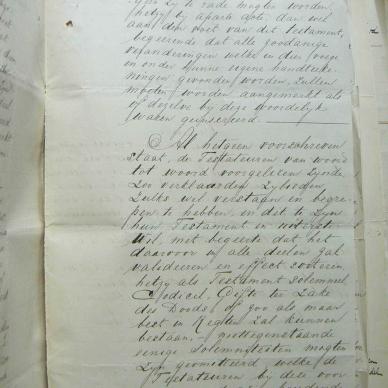 zy te rade mogten worden
hetzy by aparte acte, dan wel
aan den voet van dit Testament,
begeerende dat alle zoodanige
veranderingen welke in dier voege
en onder hunne eigene handteeke-
ningen gevonden worden, zullen
moeten worden aangemerkt als
of dezelve by deze woordelyk
waren geinsereerd.
Al hetgeen voorschreven
staat, de Testateuren van woord
tot woord voorgelezen zynde
Zoo verklaarden Zylieden
Zulks wel verstaan en begre-
pen te hebben, en dit te zyn
hun Testament en uiterste
Wil, met begeerte dat het
daarvoor in alle deelen zal
valideeren en effect sorteren
hetzy als Testament solemneel
Codicil, Gifte ter Zake
des Doods of zoo als maar
best in Regten zal kunnen
bestaan, niettegenstaande
eenige Solemniteiten mogten
zyn geomitteerd welke de
Testateuren by deze voor